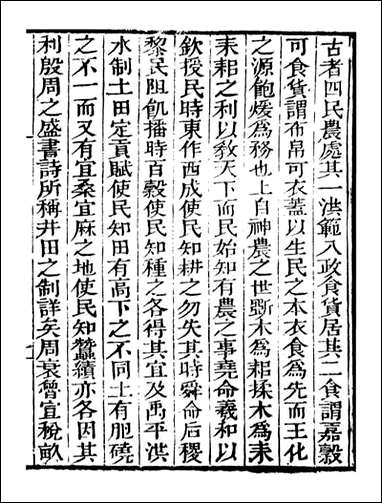 古者四民農處其一洪範八政食貨居其二食謂嘉穀
可食貨謂布帛可衣蓋以生民之本衣食為先而王化
之源飽煖為務也上自神農之世斲木為耜揉木為耒
耒耜之利以敎天下而民始知有農之事堯命羲和以
欽授民時東作西成使民知耕之勿失其時舜命后稷
黎民阻飢播時百穀使民知種之各得其宜及禹平洪
水制土田定貢賦使民知田有高下之不同土有肥磽
之不一而又有宜桑宜麻之地使民知蠶績亦各因其
利殷周之盛書詩所稱井田之制詳矣周衰魯宣稅畝